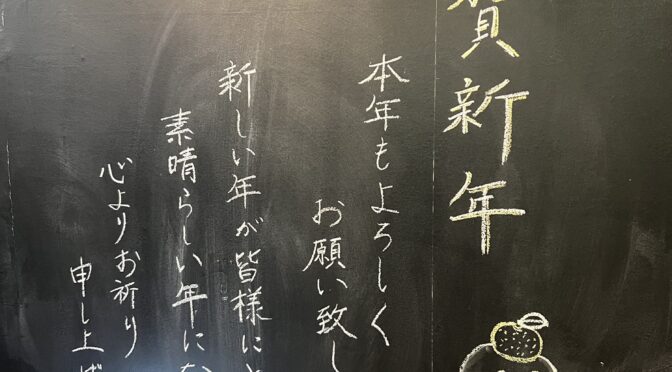 賀新年
本年もよろしく
お願い致し
新しい年が皆様にと
素晴らしい年にな
心よりお祈り
申し上げ